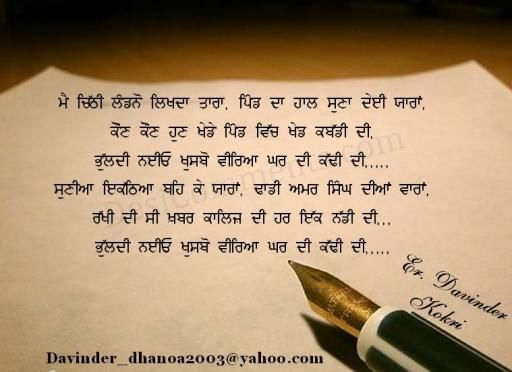 ਮੈ ਚਿੱਠੀ ਲੰਡਨੋ ਲਿਖਦਾ ਤਾਰਾ, ਪਿੰਡ ਦਾ ਹਾਲ ਸੁਣਾ ਦੇਈ ਯਾਰਾਂ,
ਕੌਣ ਕੌਣ ਹੁਣ ਖੇਡੇ ਪਿੰਡ ਵਿੱਚ ਖੇਡ ਕਬੱਡੀ ਦੀ,
ਭੁੱਲਦੀ ਨਈਓ ਖੁਸਬੋ ਵੀਰਿਆ ਘਰ ਦੀ ਕੱਢੀ ਦੀ,....
ਸੁਣੀਆ ਇਕਠਿਆ ਬਹਿ ਕੇ ਯਾਰਾਂ, ਢਾਡੀ ਅਮਰ ਸਿੰਘ ਦੀਆਂ ਵਾਰਾਂ,
ਰੱਖੀ ਦੀ ਸੀ ਖ਼ਬਰ ਕਾਲਿਜ ਦੀ ਹਰ ਇੱਕ ਨੱਡੀ ਦੀ...
ਭੁੱਲਦੀ ਨਈਓ ਖੁਸਬੋ ਵੀਰਿਆ ਘਰ ਦੀ ਕੱਢੀ ਦੀ,....
DesiComments.com
Er. Davinder
Kokri
Davinder_dhanoa2003@yahoo.com